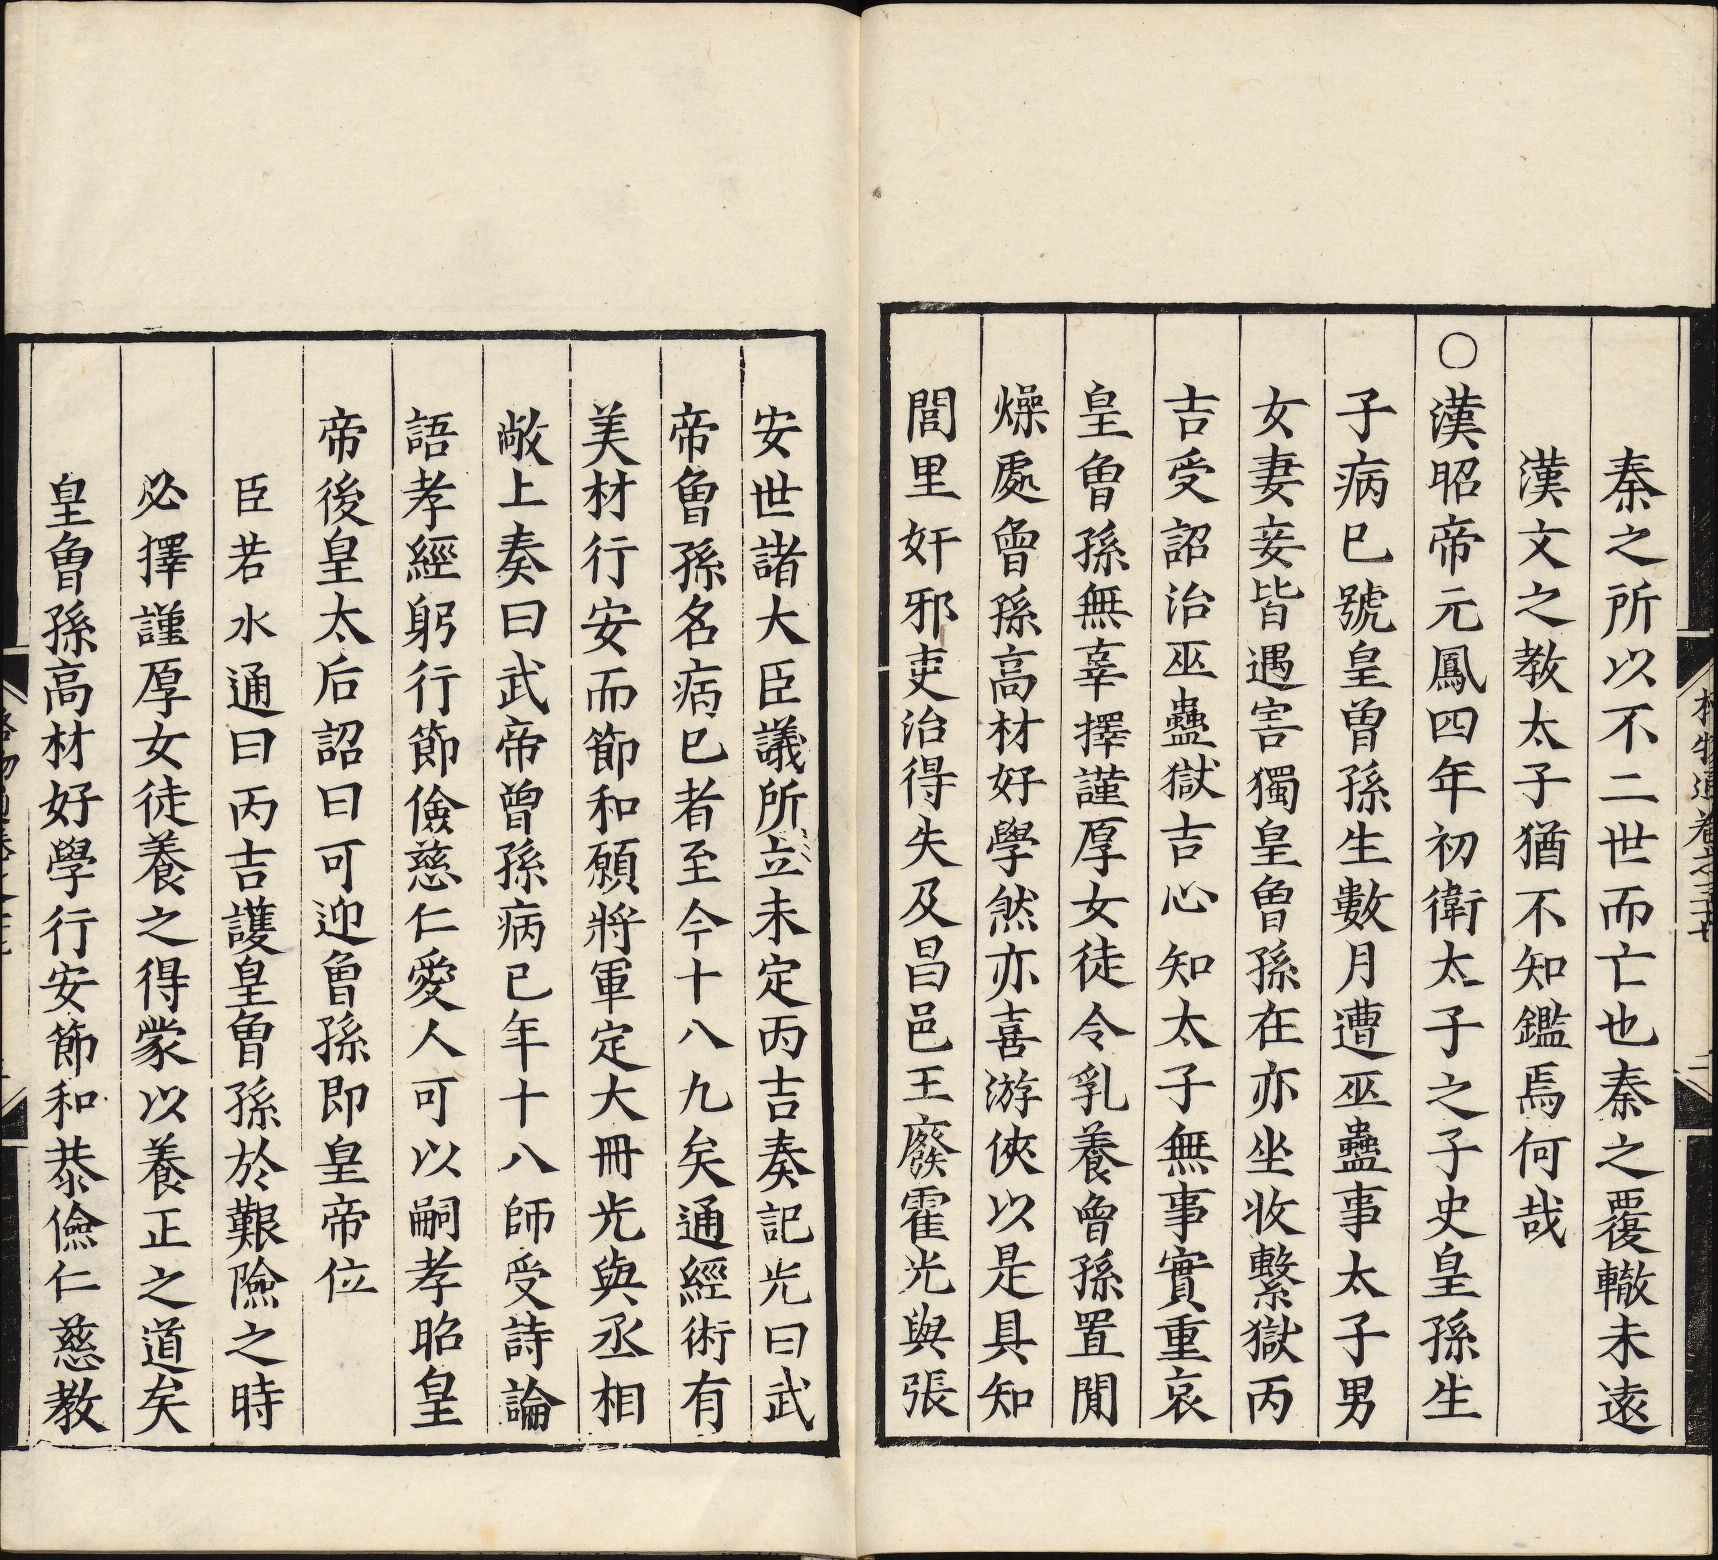 秦之所以不二世而亡也秦之覆轍未遠
漢文之教太子猶不知鑑焉何哉
〇漢昭帝元鳳四年初衛太子之子史皇孫生
子病已號皇曾孫生數月遭巫蠱事太子男
女妻妾皆遇害獨皇曾孫在亦坐收繫獄丙
吉受詔治巫蠱獄吉心知太子無事實重哀
皇曾孫無辜擇謹厚女徒令乳養曾孫置閒
燥處曾孫高材好學然亦喜游俠以是具知
閭里奸邪吏治得失及昌邑王廢霍光與張
安世諸大臣議所立未定丙吉奏記光曰武
帝曾孫名病已者至今十八九矣通經術有
美材行安而節和願將軍定大冊光與丞相
敞上奏曰武帝曾孫病已年十八師受詩論
語孝經躬行節儉慈仁愛人可以嗣孝昭皇
帝後皇太后詔曰可迎曾孫即皇帝位
臣若水通曰丙吉護皇曾孫於艱險之時
必擇謹厚女徒養之得蒙以養正之道矣
皇曾孫高材好學行安節和恭儉仁慈教